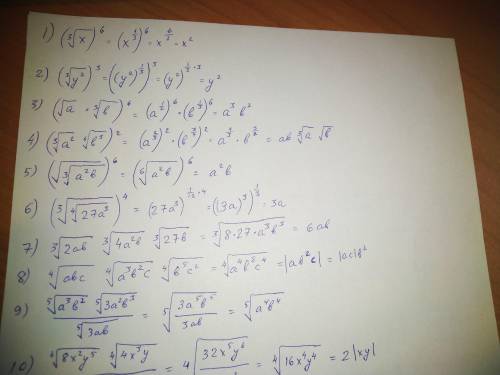 1) (∛x)⁶ = (x^{1/3})⁶ = x^{6/3} = x²
2) (∛y²)³ = ((y²)^{1/3})³ = (y²)^{1/3·3} = y²
3) (√a · ∛b)⁶ = (a^{1/2})⁶ · (b^{1/3})⁶ = a³ b²
4) (∛a² ⁴√b³)² = (a^{2/3})² · (b^{3/4})² = a^{4/3} · b^{3/2} = ab ∛a √b
5) (√∛(a²b))⁶ = (⁶√(a²b))⁶ = a²b
6) (∛⁴√(27a³))⁴ = (27a³)^{1/12·4} = ((3a)³)^{1/3} = 3a
7) ∛(2ab) ∛(4a²b) ∛(27b) = ∛(8·27·a³b³) = 6ab
8) ⁴√(abc) ⁴√(a³b²c) ⁴√(b⁵c²) = ⁴√(a⁴b⁸c⁴) = |ab²c| = |ac|b²
9) ⁵√(a³b²) ⁵√(3a²b³) / ⁵√(3ab) = ⁵√(3a⁵b⁵ / 3ab) = ⁵√(a⁴b⁴)
10) ⁴√(8x²y⁵) ⁴√(4x³y) = ⁴√(32x⁵y⁶ = ⁴√(16x⁴y⁴) = 2|xy|